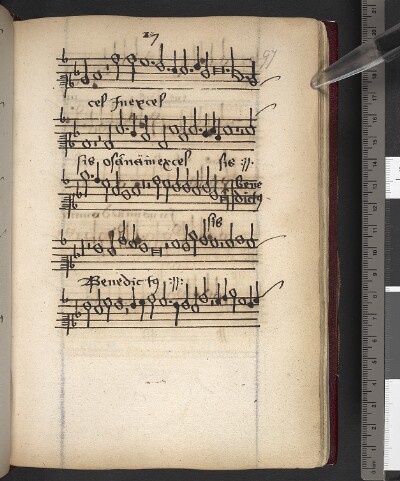 27
97
cel Inexcel
sis, osānainexcel sis :||:
bene
dictꝰ
sis
Benedictꝰ :||: